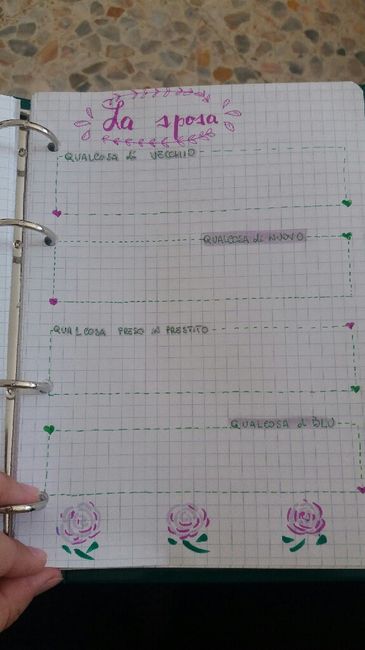 La sposa
QUALCOSA di VECCHIO
QUALCOSA di NUOVO
QUALCOSA PRESO IN PRESTITO
QUALCOSA di BLU